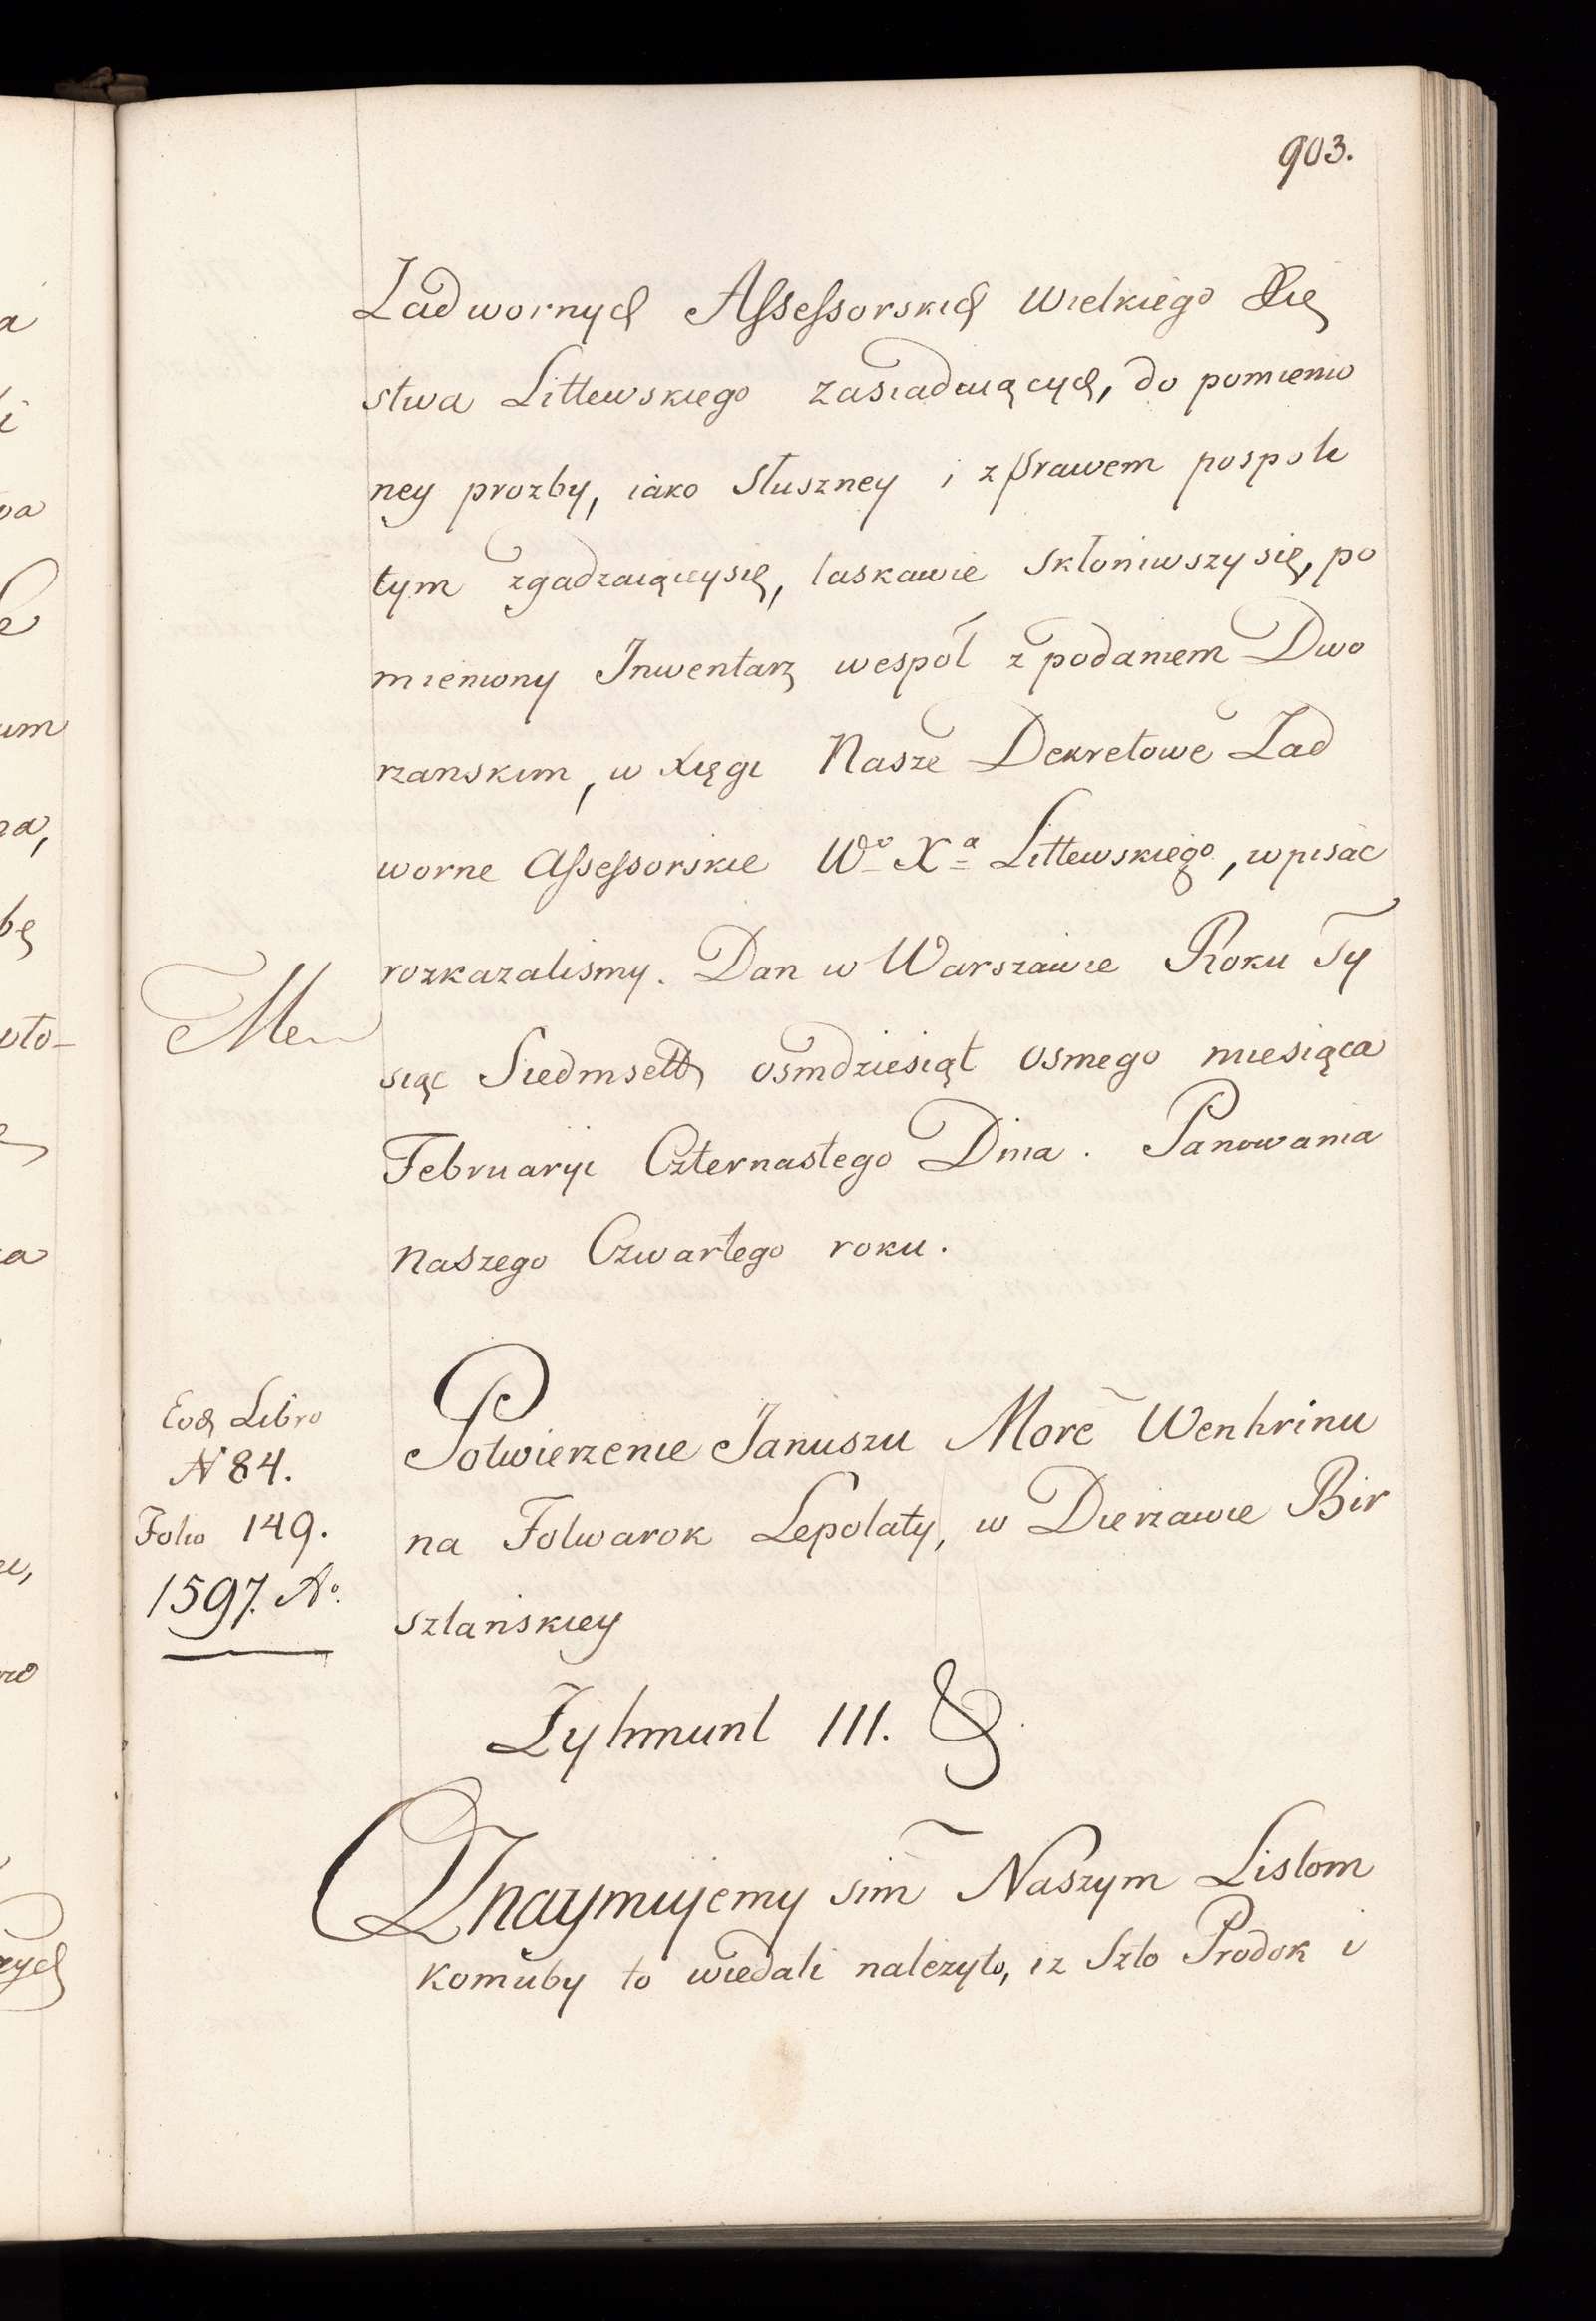 903.
Zadwornych Assessorskich Wielkiego Xię
stwa Littewskiego zasiadaiących, do pomienio
ney prozby, iako słuszney i z prawem pospoli
tym zgadzaiącey się, łaskawie skłoniwszy się, po
mieniony Inwentarz wespół z podaniem Dwo
rzanskim, w xięgi Nasze Dekretowe Zad
worne Assessorskie Wo Xa Littewskiego, wpisać
rozkazalismy. Dan w Warszawie Roku Ty
siąc Siedmsett osmdziesiąt osmego miesiąca
Februaryi Czternastego Dnia. Panowania
naszego Czwartego roku.
Eod Libro
N 84.
Folio 149.
1597. Ao.
Potwierzenie Januszu More Wenhrinu
na Folwarok Lepolaty, w Dierzawie Bir
sztanskiey
Zyhmunt III. &
Oznaymujemy sim Naszym Listom
komuby to wiedali należyto, iz szto Prodok i